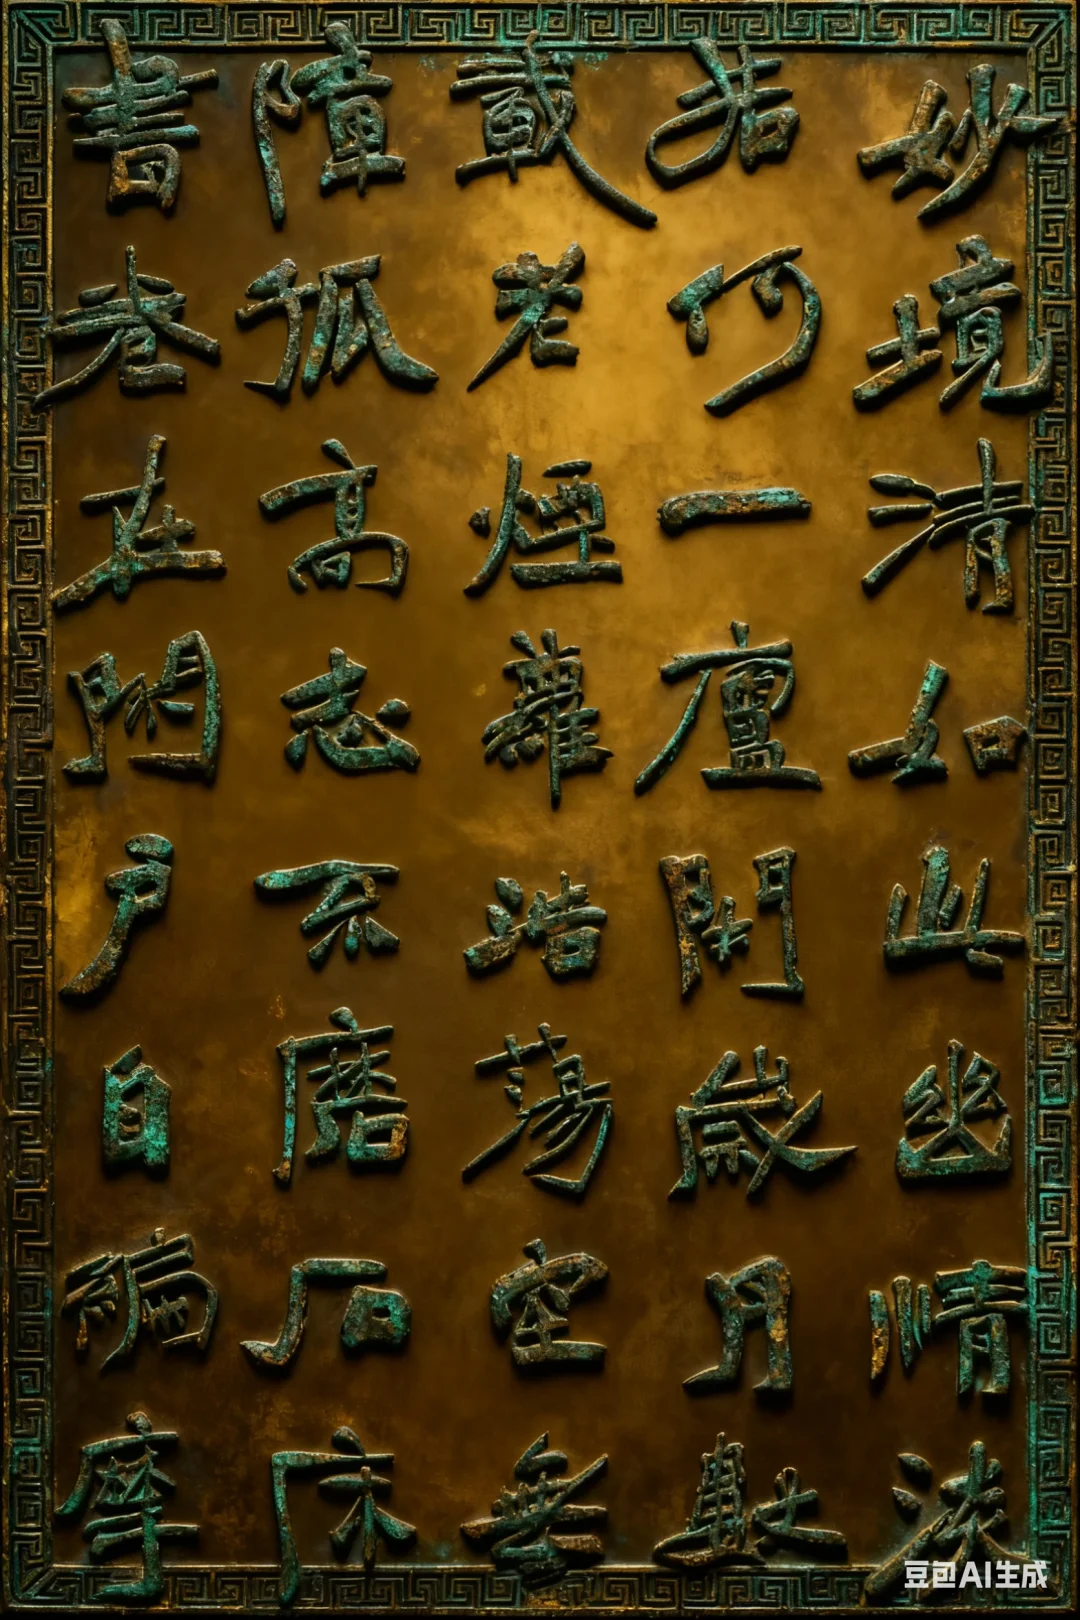 妙境清如此幽情淡
若何一廬閑歲月數
載老煙蘿浩蕩空無
障孤高志不磨石床
書卷在閉戶自編摩
豆包AI生成